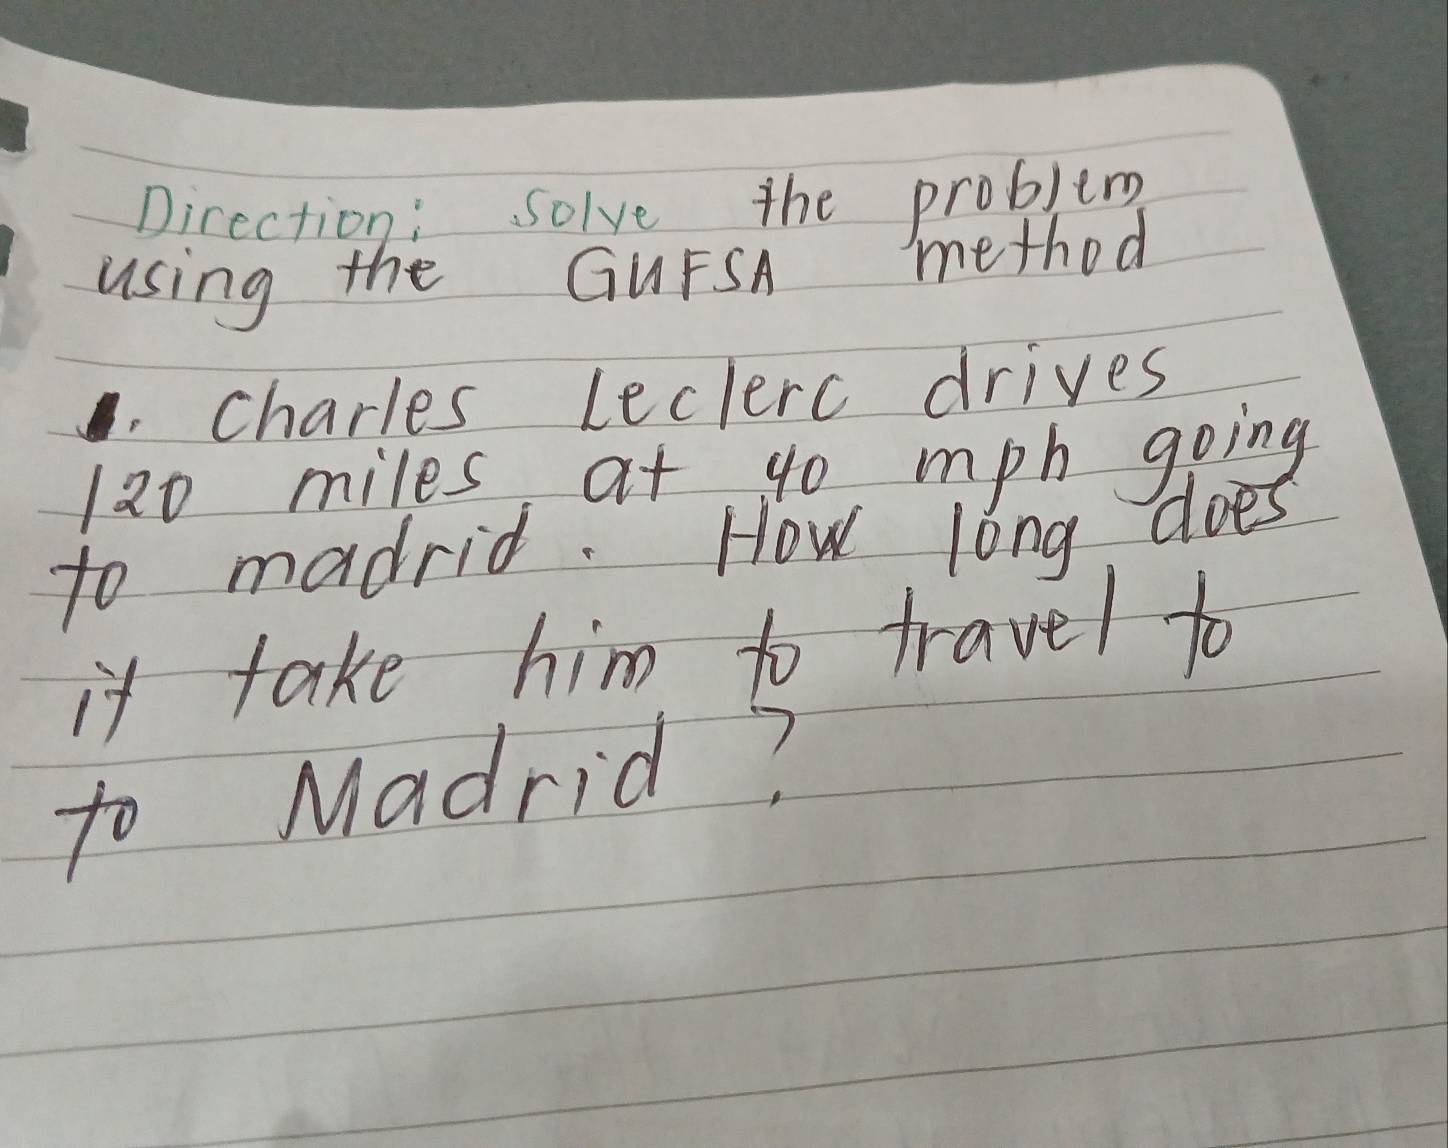 Direction: Solve the problem
using the GUFSA method
1. Charles Leclerc drives
120 miles at 40 mph going
to madrid. How long does
it take him to travel to
to Madrid?